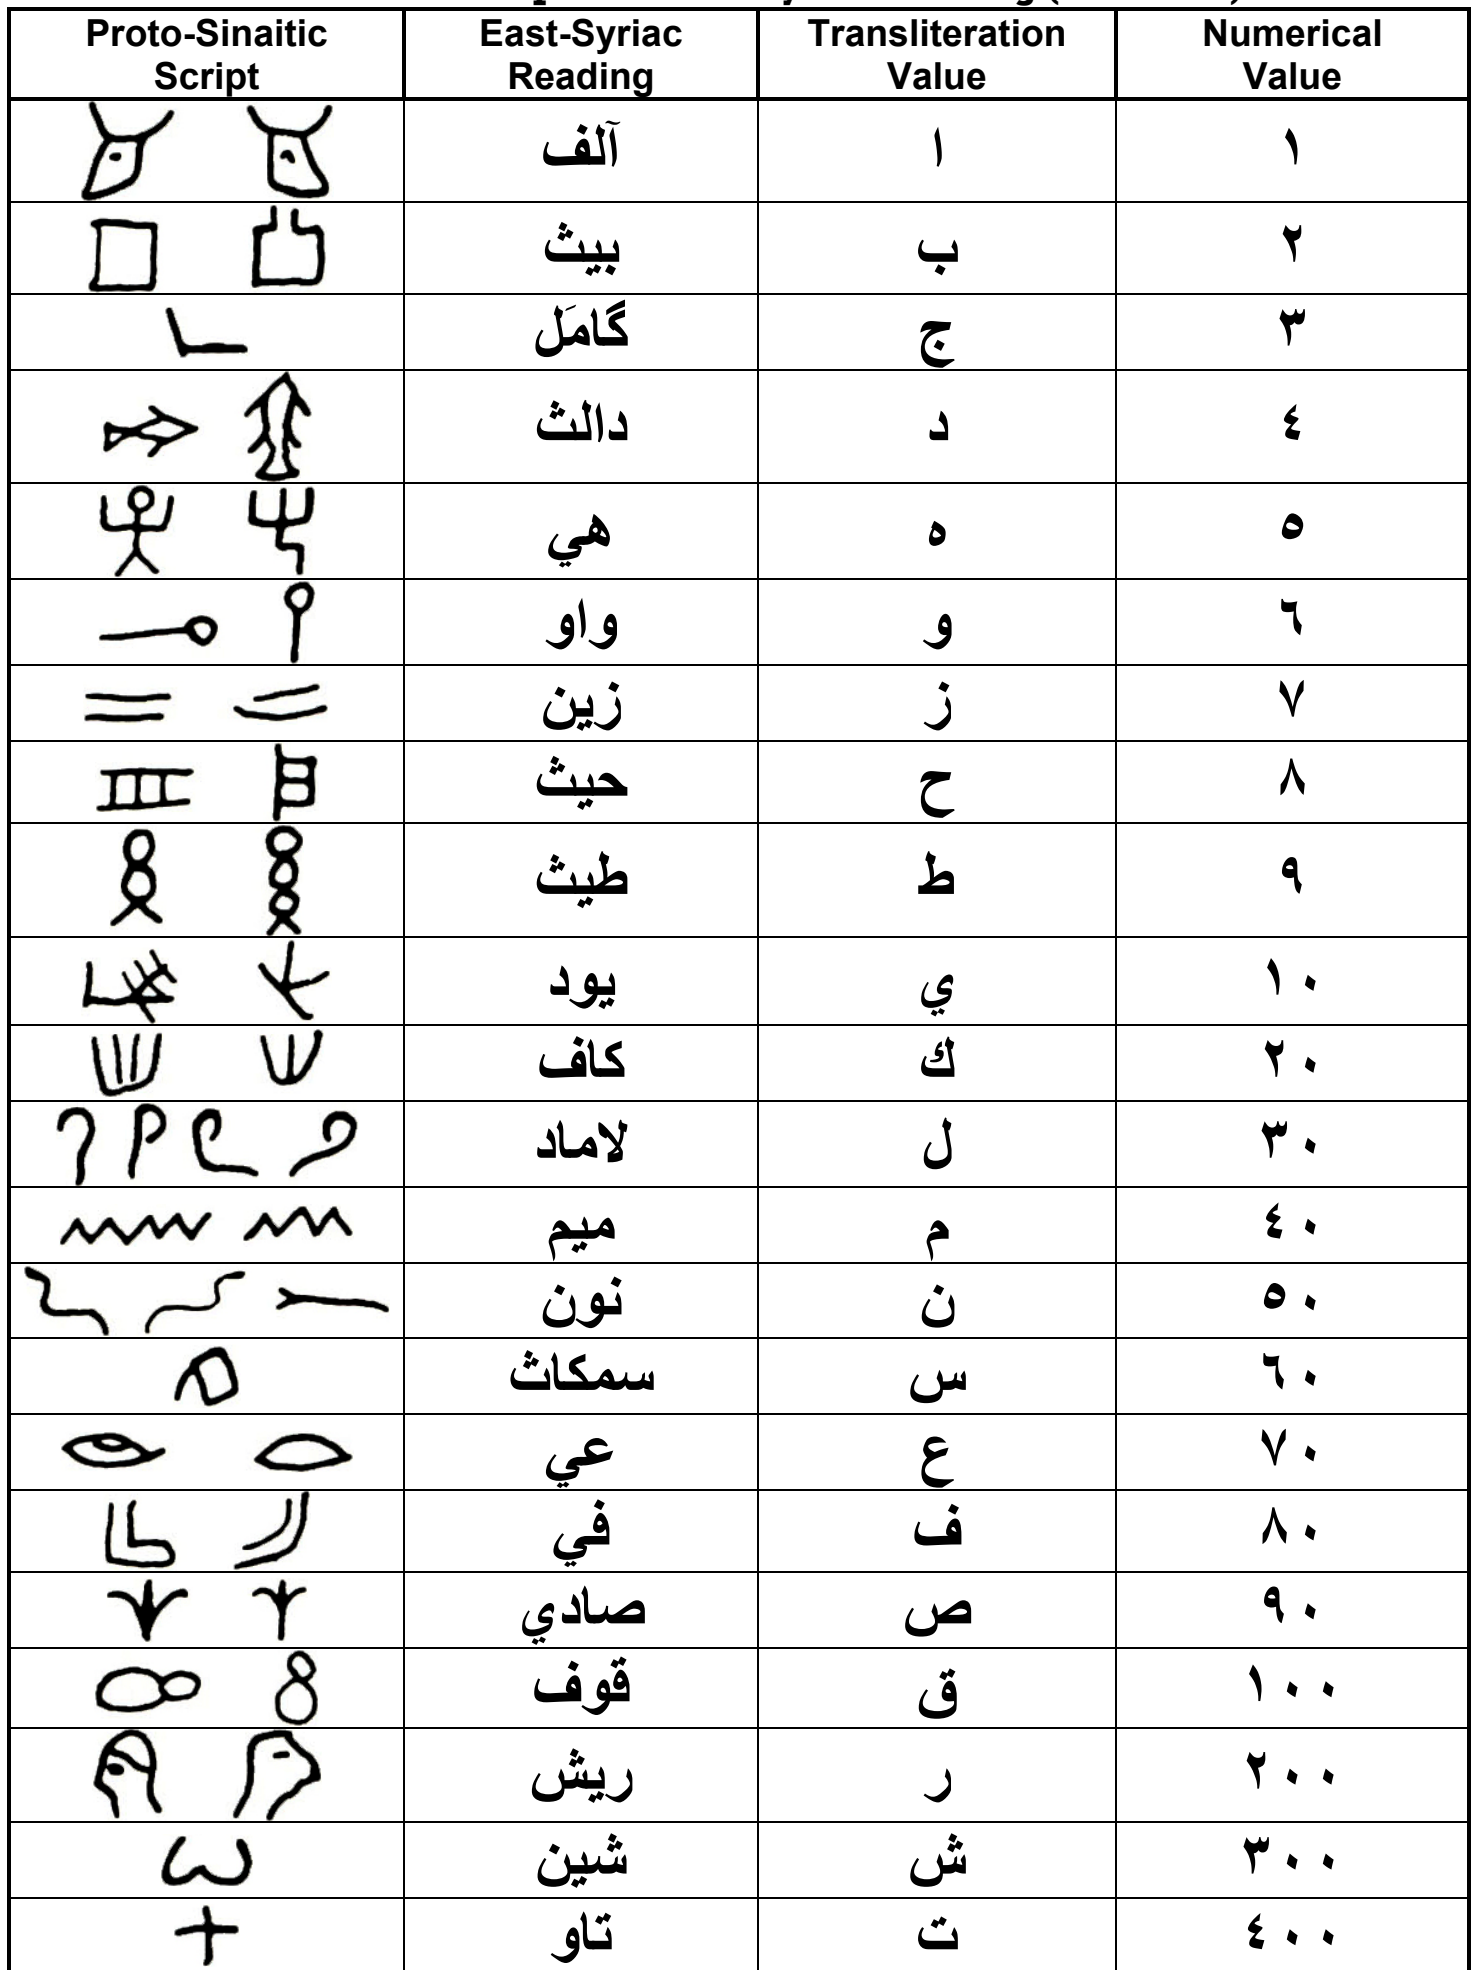 Proto-Sinaitic Script | East-Syriac Reading | Transliteration Value | Numerical Value
آلف | ا | ١
بيث | ب | ٢
گامَل | ج | ٣
دالث | د | ٤
هي | ه | ٥
واو | و | ٦
زين | ز | ٧
حيث | ح | ٨
طيث | ط | ٩
يود | ي | ١٠
كاف | ك | ٢٠
لاماد | ل | ٣٠
ميم | م | ٤٠
نون | ن | ٥٠
سمكاث | س | ٦٠
عي | ع | ٧٠
في | ف | ٨٠
صادي | ص | ٩٠
قوف | ق | ١٠٠
ريش | ر | ٢٠٠
شين | ش | ٣٠٠
تاو | ت | ٤٠٠